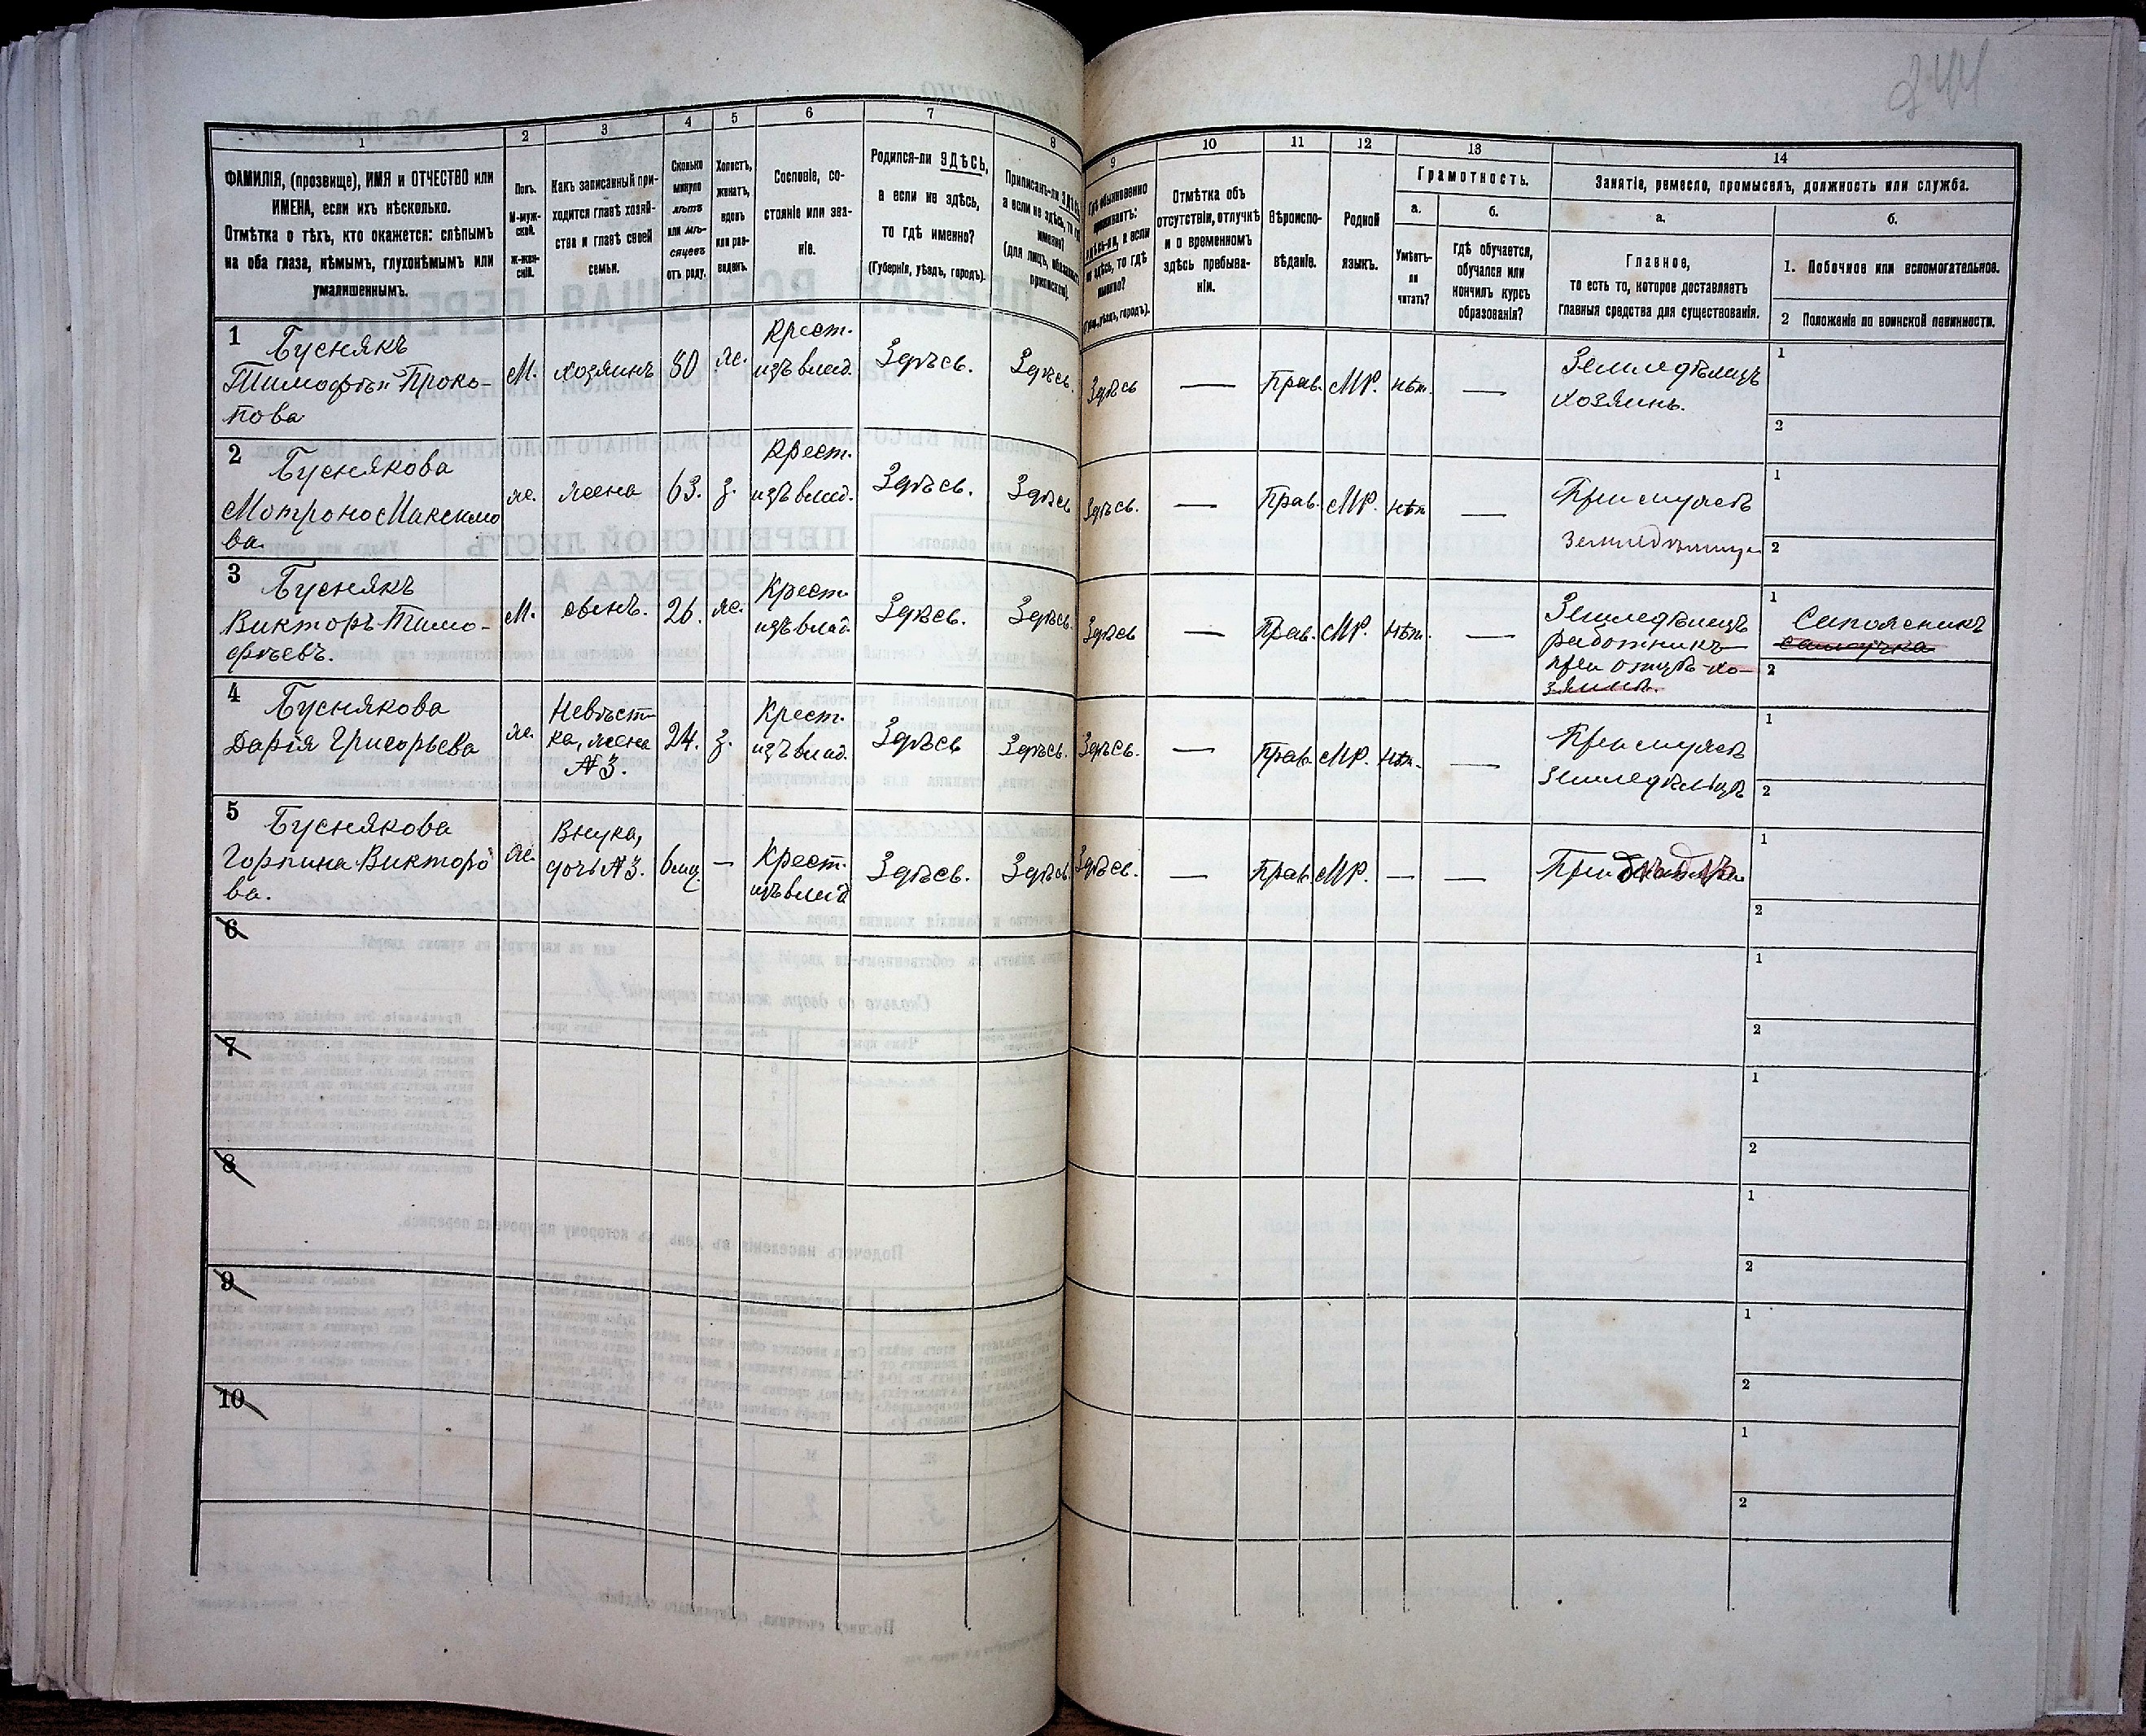 244
1
ФАМИЛІЯ, (прозвище), ИМЯ и ОТЧЕСТВО или
ИМЕНА, если ихъ нѣсколько.
Отмѣтка о тѣхъ, кто окажется: слѣпымъ
на оба глаза, нѣмымъ, глухонѣмымъ или
умалишеннымъ.
2
Полъ.
М-муж-
ской.
Ж-жен-
скій.
3
Какъ записанный при-
ходится главѣ хозяй-
ства и главѣ своей
семьи.
4
Сколько
минуло
лѣтъ
или мѣ-
сяцевъ
отъ роду.
5
Холостъ,
женатъ,
вдовъ
или раз-
веденъ.
6
Сословіе, со-
стояніе или зва-
ніе.
7
Родился-ли ЗДѢСЬ,
а если не здѣсь,
то гдѣ именно?
(Губернія, уѣздъ, городъ).
8
Приписанъ-ли
а если не здѣсь, то
именно?
(для лицъ,
9
Гдѣ обыкновенно
проживаетъ:
здѣсь-ли, а если
не здѣсь, то гдѣ
именно?
уѣздъ, городъ).
10
Отмѣтка объ
отсутствіи, отлучкѣ
и о временномъ
здѣсь пребыва-
ніи.
11
Вѣроиспо-
вѣданіе.
12
Родной
языкъ.
13
Грамотность.
а.
Умѣетъ-
ли
читать?
б.
гдѣ обучается,
обучался или
кончилъ курсъ
образованія?
14
Занятіе, ремесло, промыселъ, должность или служба.
а.
Главное,
то есть то, которое доставляетъ
главныя средства для существованія.
б.
1. Побочное или вспомогательное.
2 Положеніе по воинской повинности.
1
Буснякъ
Тимофѣй Проко-
пова
М.
хозяинъ
80
ж.
Крест.
изъ влад.
Здѣсь.
Здѣсь.
Здѣсь
—
Прав.
МР.
нѣт.
—
Земледѣлецъ
хозяинъ.
1
2
2
Буснякова
Мотроно Максимо
ва.
ж.
жена
63.
з.
Крест.
изъ влад.
Здѣсь.
Здѣсь
Здѣсь.
—
Прав.
МР.
нѣт
—
При мужѣ
1
2
3
Буснякъ
Викторъ Тимо-
фѣевъ.
М.
сынъ.
26.
ж.
Крест.
изъ влад.
Здѣсь.
Здѣсь.
Здѣсь
—
Прав.
МР.
нѣт.
—
Земледѣлецъ
работникъ
при отцѣ-хо-
зяинѣ.
1
Сапожникъ
2
4
Буснякова
Дарія Григорьева
ж.
Невѣст-
ка, жена
№3.
24.
з.
Крест.
изъ влад.
Здѣсь
Здѣсь.
Здѣсь.
—
Прав.
МР.
нѣт.
—
При мужѣ
земледѣльцѣ
1
2
5
Буснякова
Горпина Викторо
ва.
ж.
Внука,
дочь №3.
6 мц.
—
Крест.
изъ влад
Здѣсь.
Здѣсь.
Здѣсь.
—
Прав.
МР.
—
—
При
1
2
6
1
2
7
1
2
8
1
2
9
1
2
10
1
2